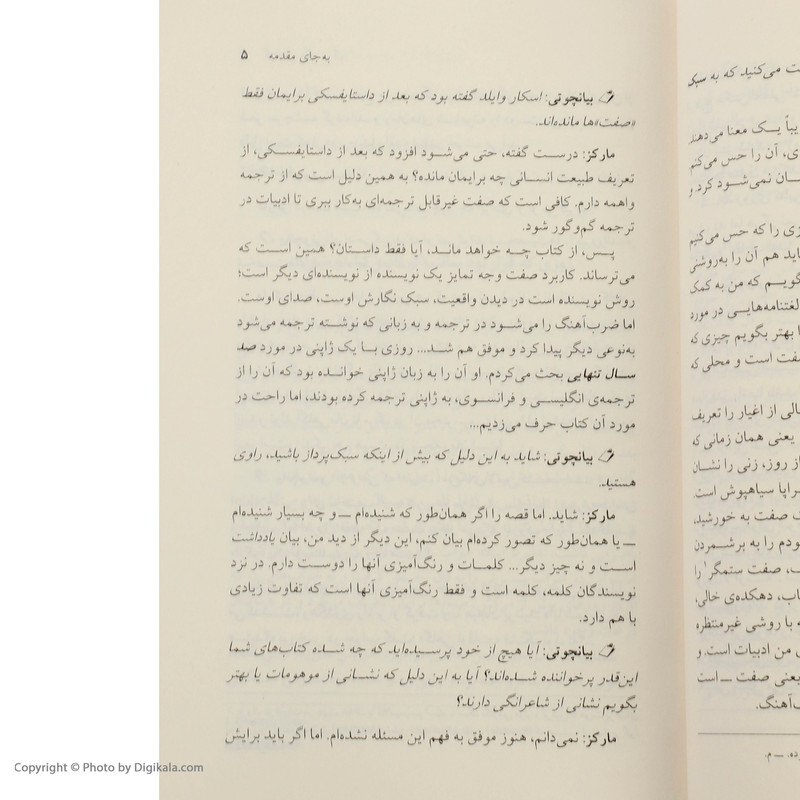 به‌جای مقدمه ۵
بیانچوتی: اسکار وایلد گفته بود که بعد از داستایفسکی برایمان فقط
«صفت»ها مانده‌اند.
مارکز: درست گفته، حتی می‌شود افزود که بعد از داستایفسکی، از
تعریف طبیعت انسانی چه برایمان مانده؟ به همین دلیل است که از ترجمه
واهمه دارم. کافی است که صفت غیرقابل ترجمه‌ای به‌کار ببری تا ادبیات در
ترجمه گم‌وگور شود.
پس، از کتاب چه خواهد ماند، آیا فقط داستان؟ همین است که
می‌ترساند. کاربرد صفت وجه تمایز یک نویسنده از نویسنده‌ای دیگر است؛
روش نویسنده است در دیدن واقعیت، سبک نگارش اوست، صدای اوست.
اما ضرب‌آهنگ را می‌شود در ترجمه و به زبانی که نوشته ترجمه می‌شود
به‌نوعی دیگر پیدا کرد و موفق هم شد... روزی با یک ژاپنی در مورد صد
سال تنهایی بحث می‌کردم. او آن را به زبان ژاپنی خوانده بود که آن را از
ترجمه‌ی انگلیسی و فرانسوی، به ژاپنی ترجمه کرده بودند، اما راحت در
مورد آن کتاب حرف می‌زدیم...
بیانچوتی: شاید به این دلیل که بیش از اینکه سبک‌پرداز باشید، راوی
هستید.
مارکز: شاید. اما قصه را اگر همان‌طور که شنیده‌ام ــ و چه بسیار شنیده‌ام
ــ یا همان‌طور که تصور کرده‌ام بیان کنم، این دیگر از دید من، بیان یادداشت
است و نه چیز دیگر... کلمات و رنگ‌آمیزی آنها را دوست دارم. در نزد
نویسندگان کلمه، کلمه است و فقط رنگ‌آمیزی آنها است که تفاوت زیادی
با هم دارد.
بیانچوتی: آیا هیچ از خود پرسیده‌اید که چه شده کتاب‌های شما
این‌قدر پرخواننده شده‌اند؟ آیا به این دلیل که نشانی از موهومات یا بهتر
بگویم نشانی از شاعرانگی دارند؟
مارکز: نمی‌دانم، هنوز موفق به فهم این مسئله نشده‌ام. اما اگر باید برایش
می‌کنید که به سبک
یک معنا می‌دهند
آن را حس می‌کنم
نمی‌شود کرد. و
را که حس می‌کنیم
هم آن را به‌روشنی
که من به کمک
لغتنامه‌هایی در مورد
بهتر بگویم چیزی که
است و محلی که
از اغیار را تعریف
یعنی همان زمانی که
از روز، زنی را نشان
سیاهپوش است.
صفت به خورشید،
را به برشمردن
صفت ستمگر را
دهکده‌ی خالی،
با روشی غیرمنتظره
من ادبیات است. و
یعنی صفت ــ است
ــ م.
Copyright © Photo by Digikala.com